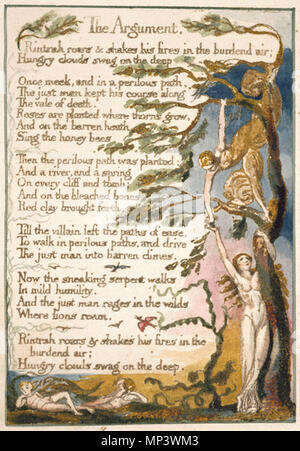 The Argument.
Rintrah roars & shakes his fires in the burdend air;
Hungry clouds swag on the deep
Once meek, and in a perilous path,
The just man kept his course along
The vale of death.
Roses are planted where thorns grow,
And on the barren heath
Sing the honey bees.
Then the perilous path was planted:
And a river, and a spring
On every cliff and tomb;
And on the bleached bones
Red clay brought forth.
Till the villain left the paths of ease,
To walk in perilous paths, and drive
The just man into barren climes.
Now the sneaking serpent walks
In mild humility.
And the just man rages in the wilds
Where lions roam.
Rintrah roars & shakes his fires in the
burdend air;
Hungry clouds swag on the deep.
alamy
Image ID: MP3WM3
www.alamy.com